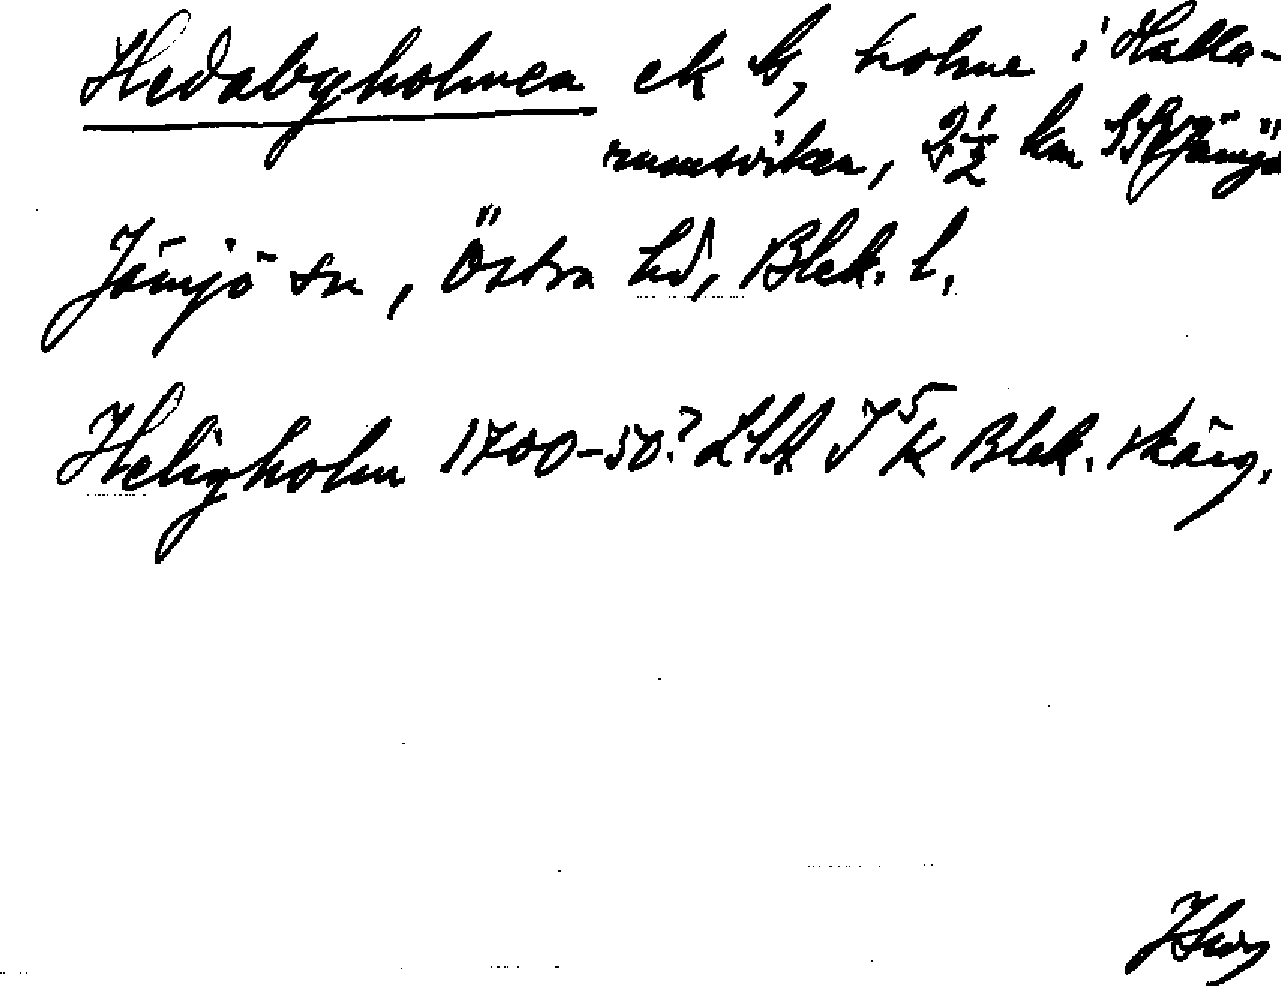 Hedabyholmen ek bl, holme i Halla-
rumsviken, 2½ km SSV Jämjö
Jämjö sn, Östra hd, Blek. l.
Heligholm 1700-50? LSA I 5 k Blek. skärg.